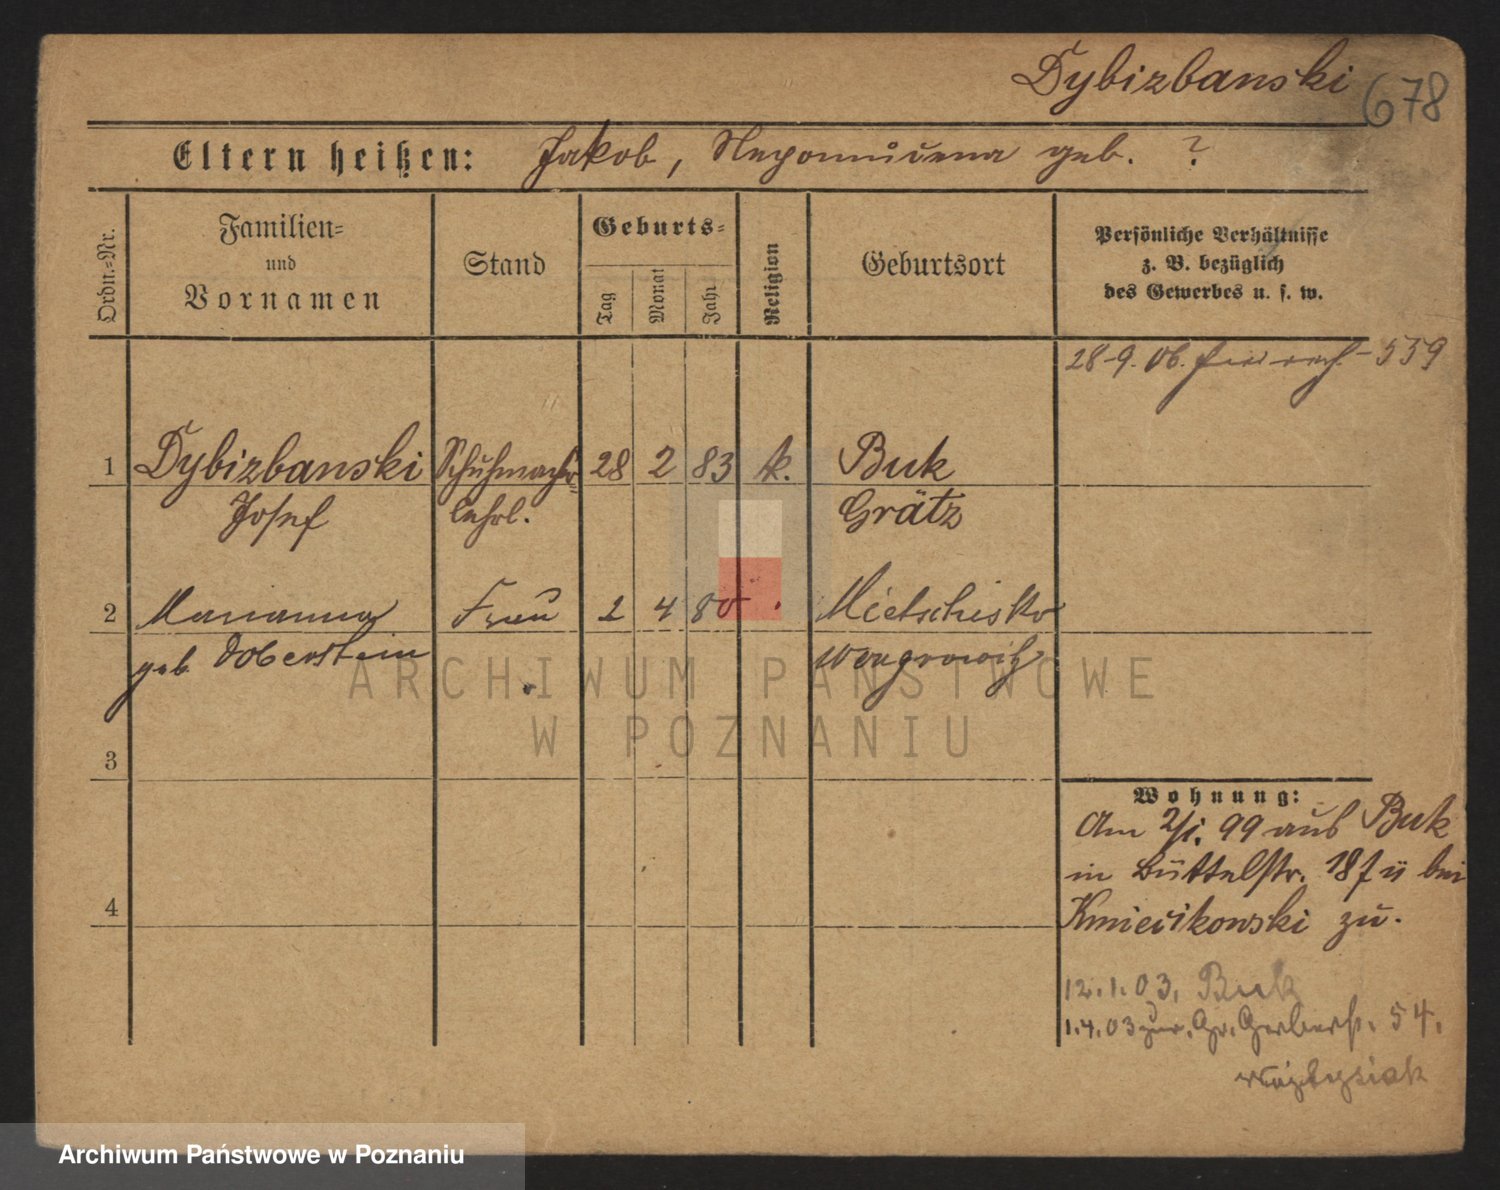 Dybizbanski
678
Eltern heißen: Jakob, Nepomucena geb. ?
Ordn.-Nr.
Familien-
und
Vornamen
Stand
Geburts-
Tag
Monat
Jahr
Religion
Geburtsort
Persönliche Verhältnisse
z. B. bezüglich
des Gewerbes u. s. w.
28-9. 06. - 559
1 Dybizbanski Schuhmacher 28 2 83 k. Buk
Josef lehrl. Grätz
2 Marianna Frau 2 4 80 Mietschisko
geb Doberstein Wongrowitz
3
4
Wohnung:
Am 2/1. 99 aus Buk
in Büttelstr. 18 bei
Kmiecikowski zu.
12.1.03, Buk
1.4.03 zur. Gr. Gerberstr. 54.
ARCHIWUM PAŃSTWOWE
W POZNANIU
Archiwum Państwowe w Poznaniu